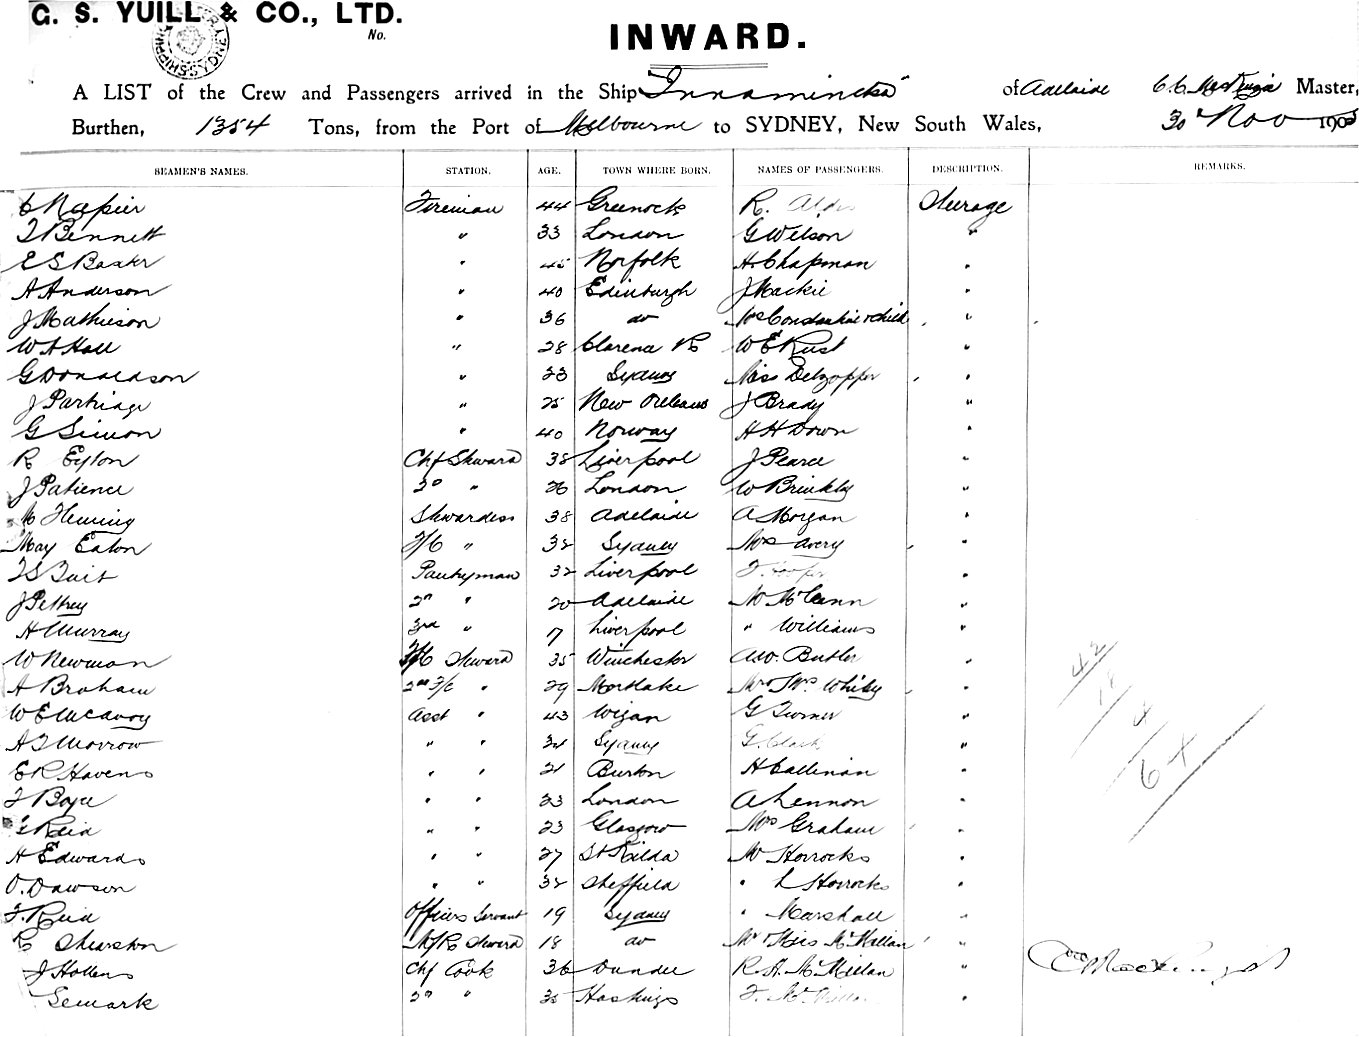 G. S. YUILL & CO., LTD.
No.
INWARD.
A LIST of the Crew and Passengers arrived in the Ship Innamincka of Adelaide Master,
Burthen, 1354 Tons, from the Port of Melbourne to SYDNEY, New South Wales, 30 Nov 190
SEAMEN'S NAMES. STATION. AGE. TOWN WHERE BORN. NAMES OF PASSENGERS. DESCRIPTION. REMARKS.
C Napier Fireman 44 Greenock R. Steerage
T Bennett " 33 London G Wilson "
E S Baxter " 45 Norfolk H Chapman "
A Anderson " 40 Edinburgh J Mackie "
J Mathieson " 36 do Mrs Constantine & child "
W A Hall " 28 Clarence R W E Rust "
G Donaldson " 23 Sydney Miss "
J Partridge " 25 New Orleans J Brady "
G Simon " 40 Norway H H Down "
R Eylon Chf Steward 38 Liverpool J Pearce "
J Patience 2nd " 26 London W Brinkley "
M Fleming Stewardess 38 Adelaide A Morgan "
May Eaton " 32 Sydney Mrs Avery "
T S Tait Pantryman 32 Liverpool T. Hooper "
J Pettrey 2nd " 20 Adelaide Mr McCann "
H Murray 3rd " 17 Liverpool " Williams "
W Newman F/C Steward 35 Winchester A W. Butler "
A Braham 2nd F/C " 29 Mortlake Mr & Mrs Whitby "
W E McAvoy Asst " 43 Wigan G Turner "
A T Morrow " " 34 Sydney G. Clark "
E R Havens " " 21 Burton H Callinan "
T Boyce " " 23 London A Lennon "
Reid " " 23 Glasgow Mrs Graham "
H Edwards " " 27 St Kilda Mr Horrocks "
O. Dawson " " 32 Sheffield " L Horrocks "
T. Reid Officers Servant 19 Sydney " Marshall "
R Shearston M/R Steward 18 do Mr & Miss McMillan "
J Hollens Chf Cook 36 Dundee R. A. McMillan "
Semark 2nd " 35 Hastings "
42
18
4
64